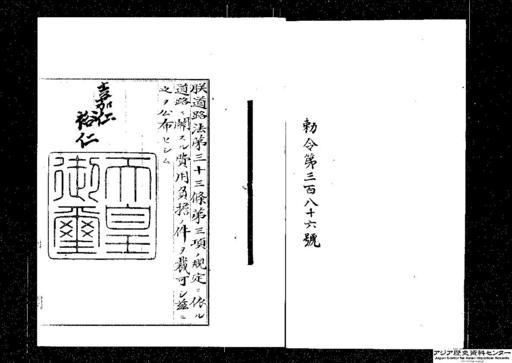 勅令第三百八十六號
朕道路法第三十三條第三項ノ規定ニ依ル
道路ニ關スル費用負擔ノ件ヲ裁可シ茲ニ
之ヲ公布セシム
嘉仁
裕仁
天皇
御璽
アジア歴史資料センター
Japan Center for Asian Historical Records